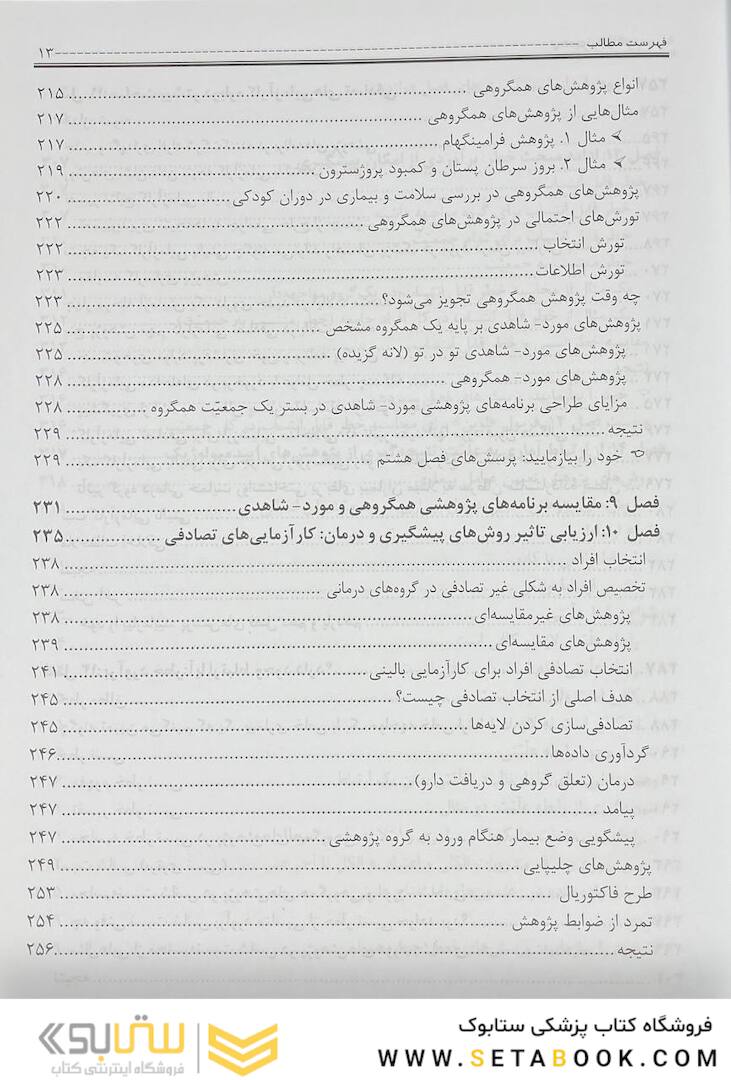 فهرست مطالب ---------- ۱۳
انواع پژوهش‌های همگروهی ..... ۲۱۵
مثال‌هایی از پژوهش‌های همگروهی ..... ۲۱۷
➢ مثال ۱. پژوهش فرامینگهام ..... ۲۱۷
➢ مثال ۲. بروز سرطان پستان و کمبود پروژسترون ..... ۲۱۹
پژوهش‌های همگروهی در بررسی سلامت و بیماری در دوران کودکی ..... ۲۲۰
تورش‌های احتمالی در پژوهش‌های همگروهی ..... ۲۲۲
تورش انتخاب ..... ۲۲۲
تورش اطلاعات ..... ۲۲۳
چه وقت پژوهش همگروهی تجویز می‌شود؟ ..... ۲۲۳
پژوهش‌های مورد- شاهدی بر پایه یک همگروه مشخص ..... ۲۲۵
پژوهش‌های مورد- شاهدی تو در تو (لانه گزیده) ..... ۲۲۵
پژوهش‌های مورد- همگروهی ..... ۲۲۸
مزایای طراحی برنامه‌های پژوهشی مورد- شاهدی در بستر یک جمعیّت همگروه ..... ۲۲۸
نتیجه ..... ۲۲۹
خود را بیازمایید: پرسش‌های فصل هشتم ..... ۲۲۹
فصل ۹: مقایسه برنامه‌های پژوهشی همگروهی و مورد- شاهدی ..... ۲۳۱
فصل ۱۰: ارزیابی تاثیر روش‌های پیشگیری و درمان: کارآزمایی‌های تصادفی ..... ۲۳۵
انتخاب افراد ..... ۲۳۸
تخصیص افراد به شکلی غیر تصادفی در گروه‌های درمانی ..... ۲۳۸
پژوهش‌های غیرمقایسه‌ای ..... ۲۳۸
پژوهش‌های مقایسه‌ای ..... ۲۳۹
انتخاب تصادفی افراد برای کارآزمایی بالینی ..... ۲۴۱
هدف اصلی از انتخاب تصادفی چیست؟ ..... ۲۴۵
تصادفی‌سازی کردن لایه‌ها ..... ۲۴۵
گردآوری داده‌ها ..... ۲۴۶
درمان (تعلق گروهی و دریافت دارو) ..... ۲۴۷
پیامد ..... ۲۴۷
پیشگویی وضع بیمار هنگام ورود به گروه پژوهشی ..... ۲۴۷
پژوهش‌های چلیپایی ..... ۲۴۹
طرح فاکتوریال ..... ۲۵۳
تمرد از ضوابط پژوهش ..... ۲۵۴
نتیجه ..... ۲۵۶
فروشگاه کتاب پزشکی ستابوک
WWW.SETABOOK.COM
ستابوک
فروشگاه اینترنتی کتاب